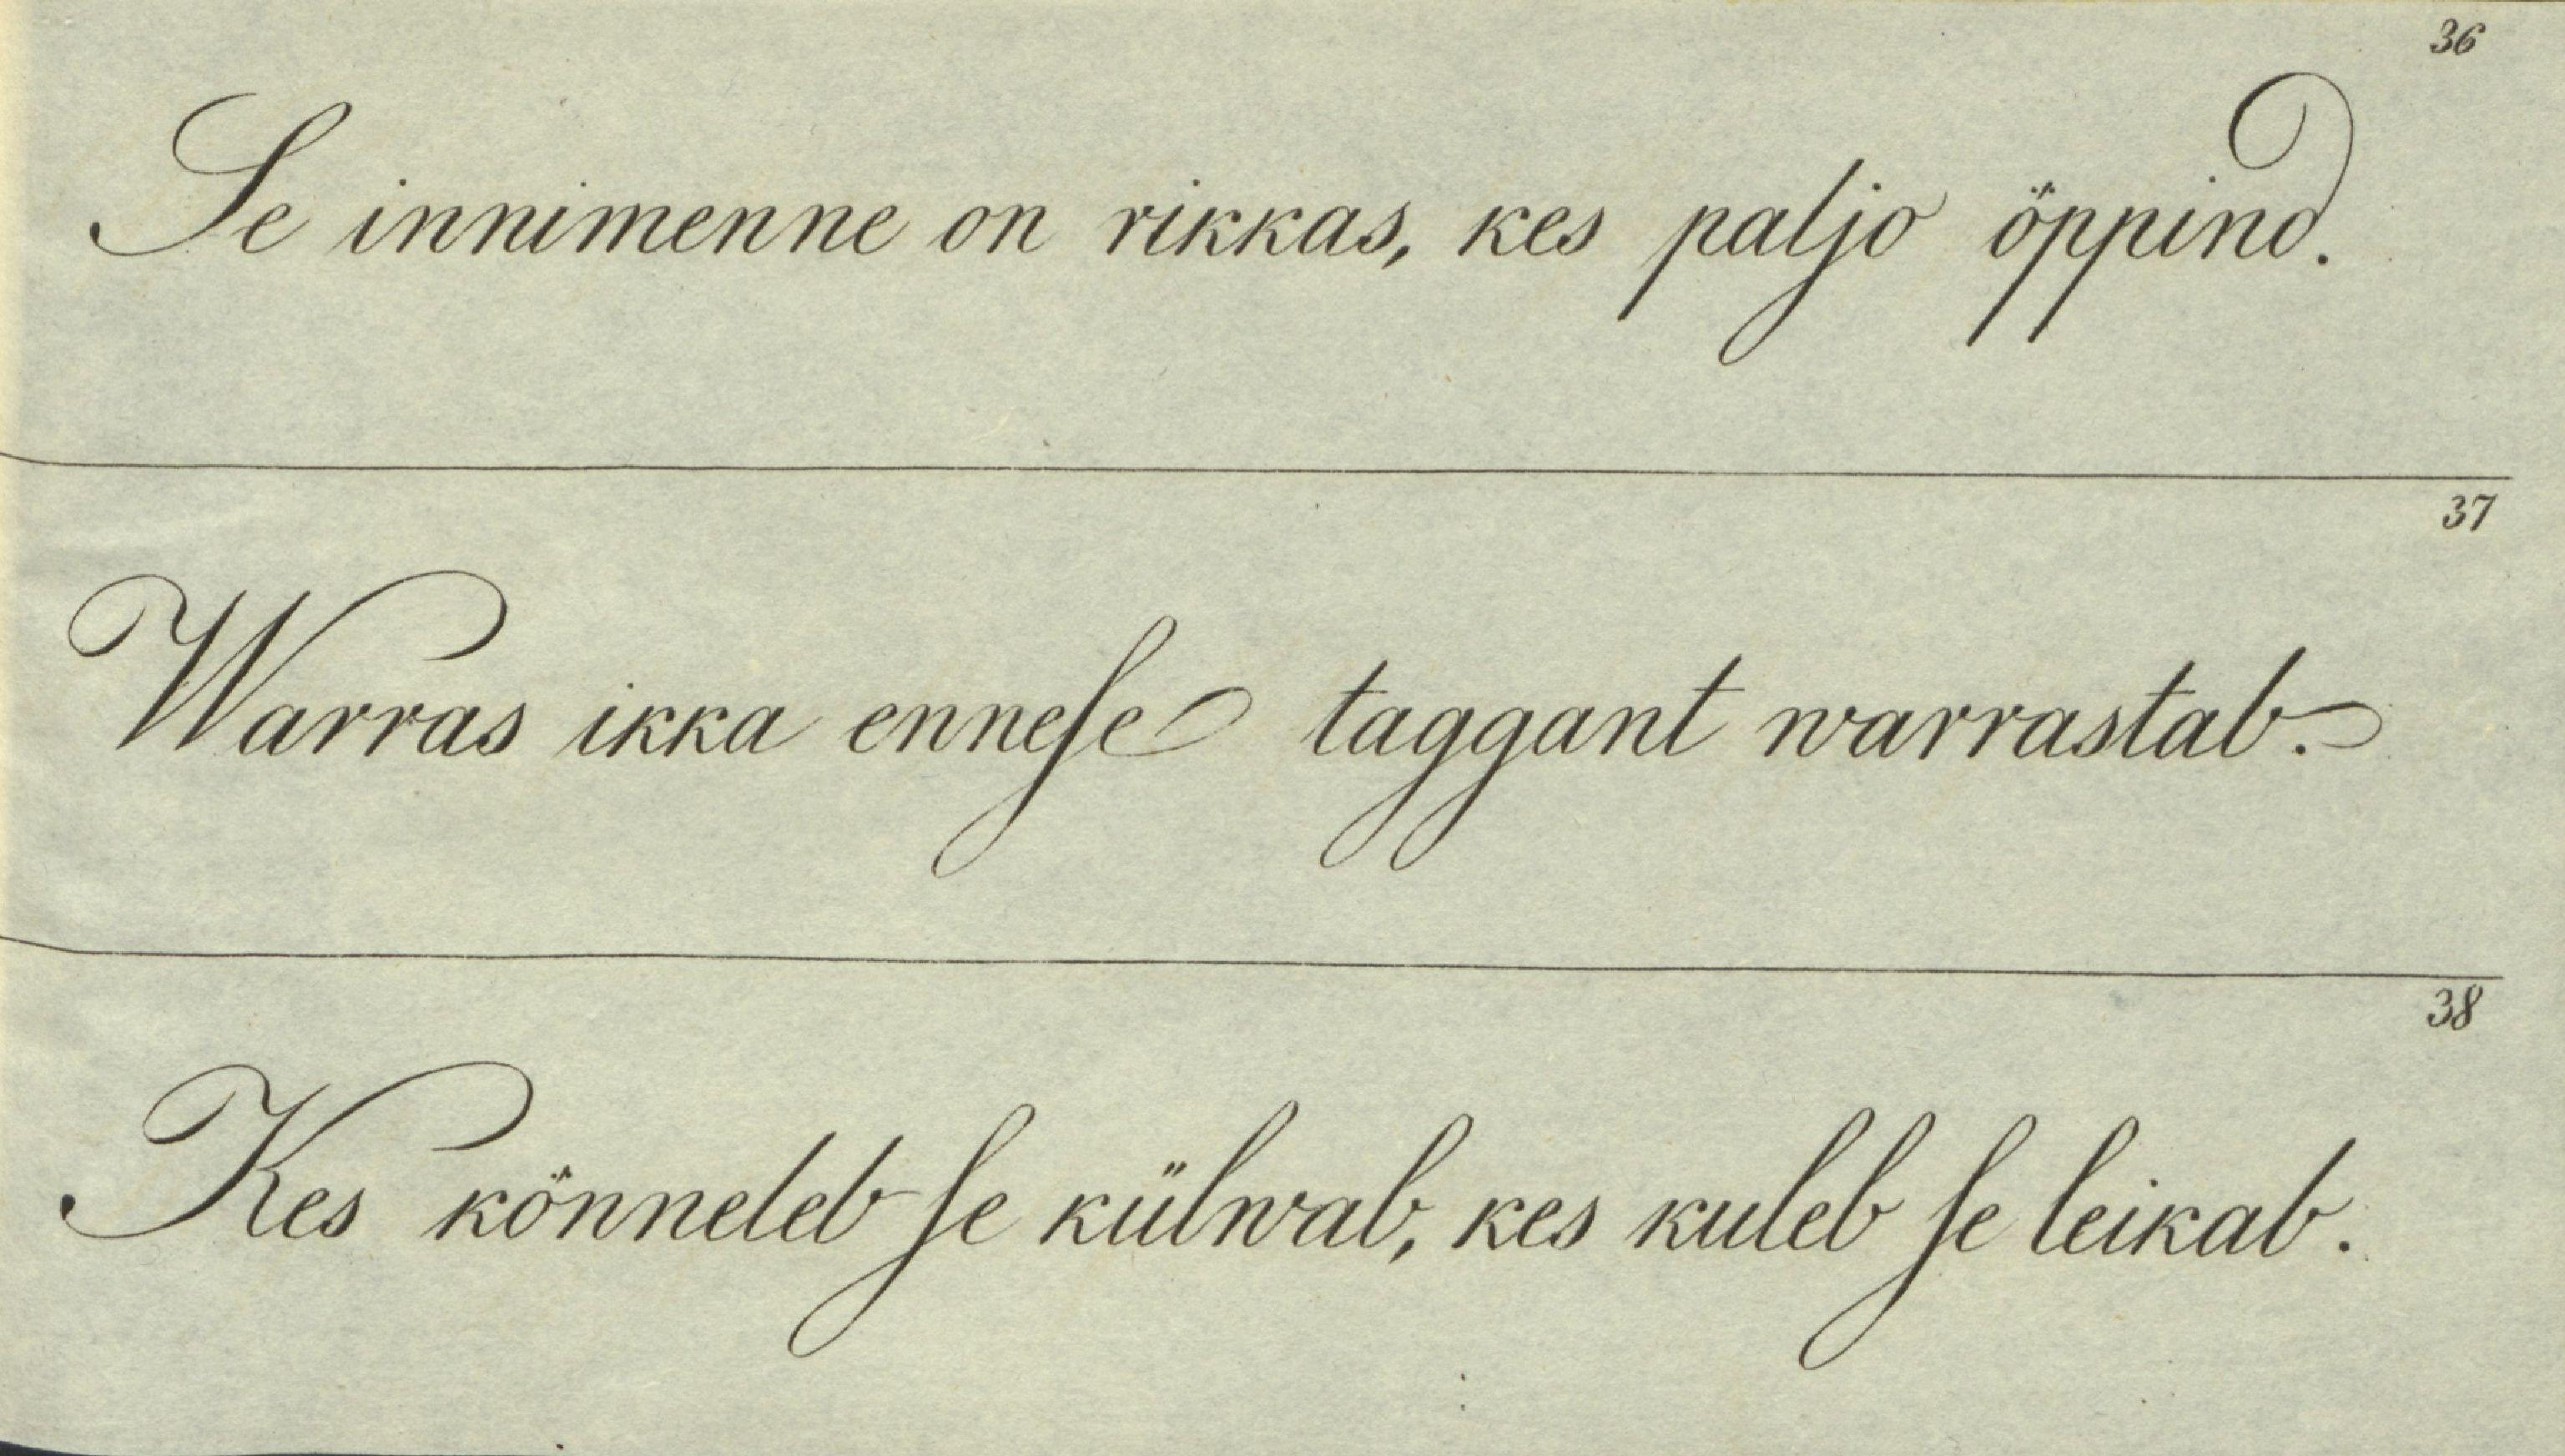 36
Se innimenne on rikkas, kes paljo öppind.
37
Warras ikka enneſe taggant warrastab.
38
Kes könneleb ſe külwab, kes kuleb ſe leikab.